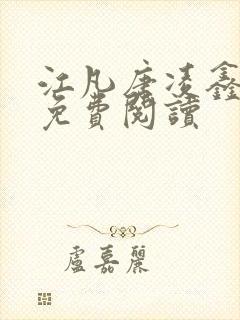 江凡唐凌鑫
免費閱讀
盧嘉麗